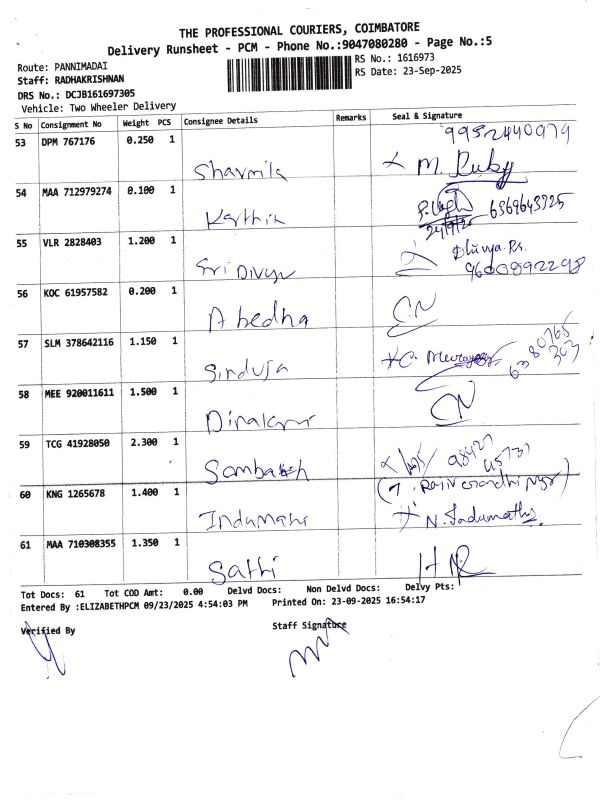 THE PROFESSIONAL COURIERS, COIMBATORE
Delivery Runsheet - PCM - Phone No.:9047080280 - Page No.:5
Route: PANNIMADAI
RS No.: 1616973
Staff: RADHAKRISHNAN
RS Date: 23-Sep-2025
DRS No.: DCJB161697305
Vehicle: Two Wheeler Delivery
S No Consignment No Weight PCS Consignee Details Remarks Seal & Signature
53 DPM 767176 0.250 1 Sharmila 9952440979
M. Ruby
54 MAA 712979274 0.100 1 Karthik 6369643925
24/9/25
55 VLR 2828403 1.200 1 Sri Divya Dhivya. Ps.
9600892298
56 KOC 61957582 0.200 1 Abedha CN
57 SLM 378642116 1.150 1 Sinduja 6380765
303
58 MEE 920011611 1.500 1 Dinakar CN
59 TCG 41928050 2.300 1 Sambath 98427
45737
60 KNG 1265678 1.400 1 Indumathi Rajiv Gandhi Ngr)
N. Indumathi
61 MAA 710308355 1.350 1 Sathi HR
Tot Docs: 61 Tot COD Amt: 0.00 Delvd Docs: Non Delvd Docs: Delvy Pts:
Entered By :ELIZABETHPCM 09/23/2025 4:54:03 PM Printed On: 23-09-2025 16:54:17
Verified By
Staff Signature